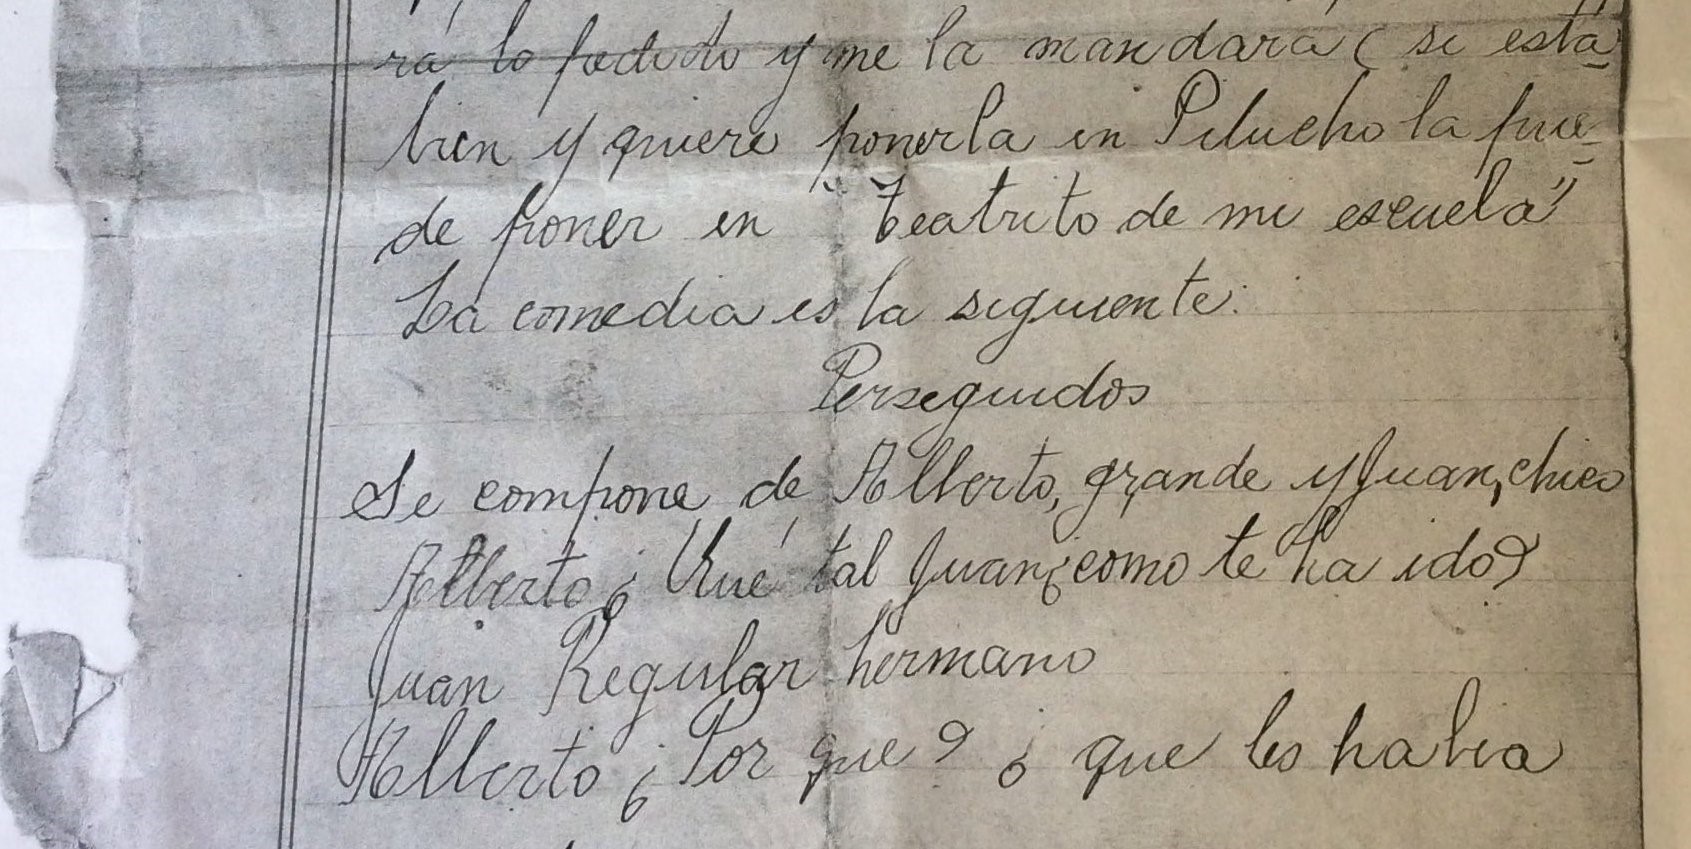 rá lo pedido y me la mandará (si está
bien y quiere ponerla en Pilucho la pue=
de poner en "teatrito de mi escuela"
La comedia es la siguiente:
Perseguidos
Se compone de Alberto, grande y Juan, chico
Alberto ¿Qué tal Juan ¿como te ha ido?
Juan Regular hermano
Alberto ¿Por que? ¿que les habia